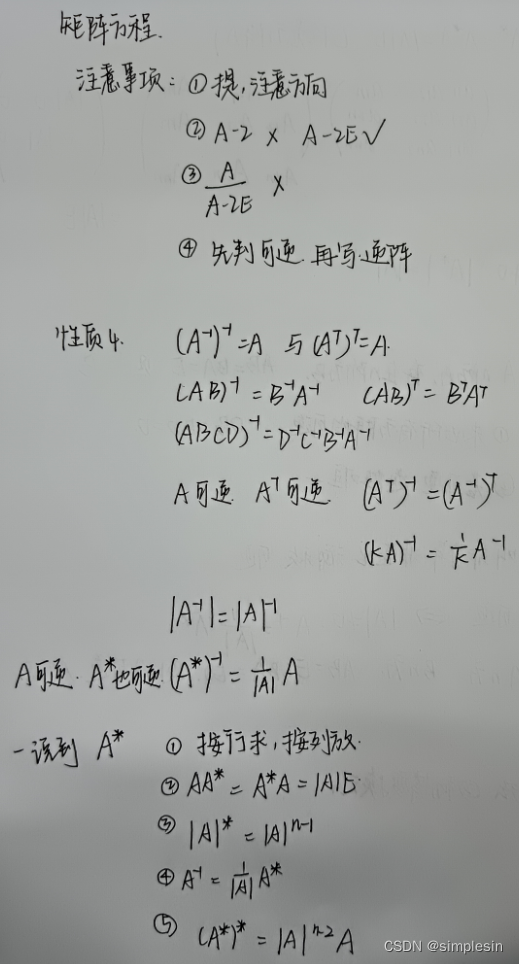 矩阵方程.
注意事项: ① 提,注意方向
② A-2 × A-2E✓
③ A/(A-2E) ×
④ 先判可逆.再写逆阵
性质4. (A⁻¹)⁻¹=A 与(Aᵀ)ᵀ=A.
(AB)⁻¹=B⁻¹A⁻¹ (AB)ᵀ=BᵀAᵀ
(ABCD)⁻¹=D⁻¹C⁻¹B⁻¹A⁻¹
A可逆 Aᵀ可逆 (Aᵀ)⁻¹=(A⁻¹)ᵀ
(kA)⁻¹=1/k A⁻¹
|A⁻¹|=|A|⁻¹
A可逆.A*也可逆(A*)⁻¹=1/|A| A
一说到 A* ① 按行求,按列放.
② AA*=A*A=|A|E.
③ |A|*=|A|ⁿ⁻¹
④ A⁻¹=1/|A| A*
⑤ (A*)*=|A|ⁿ⁻²A
CSDN @simplesin